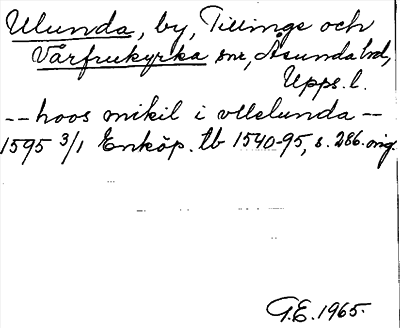 Ulunda, by, Tillinge och
Vårfrukyrka snr, Åsunda hd,
Upps. l.
-- hoos mikil i vllelunda --
1595 3/1 Enköp. tb 1540-95, s. 286. orig.
G.E. 1965.